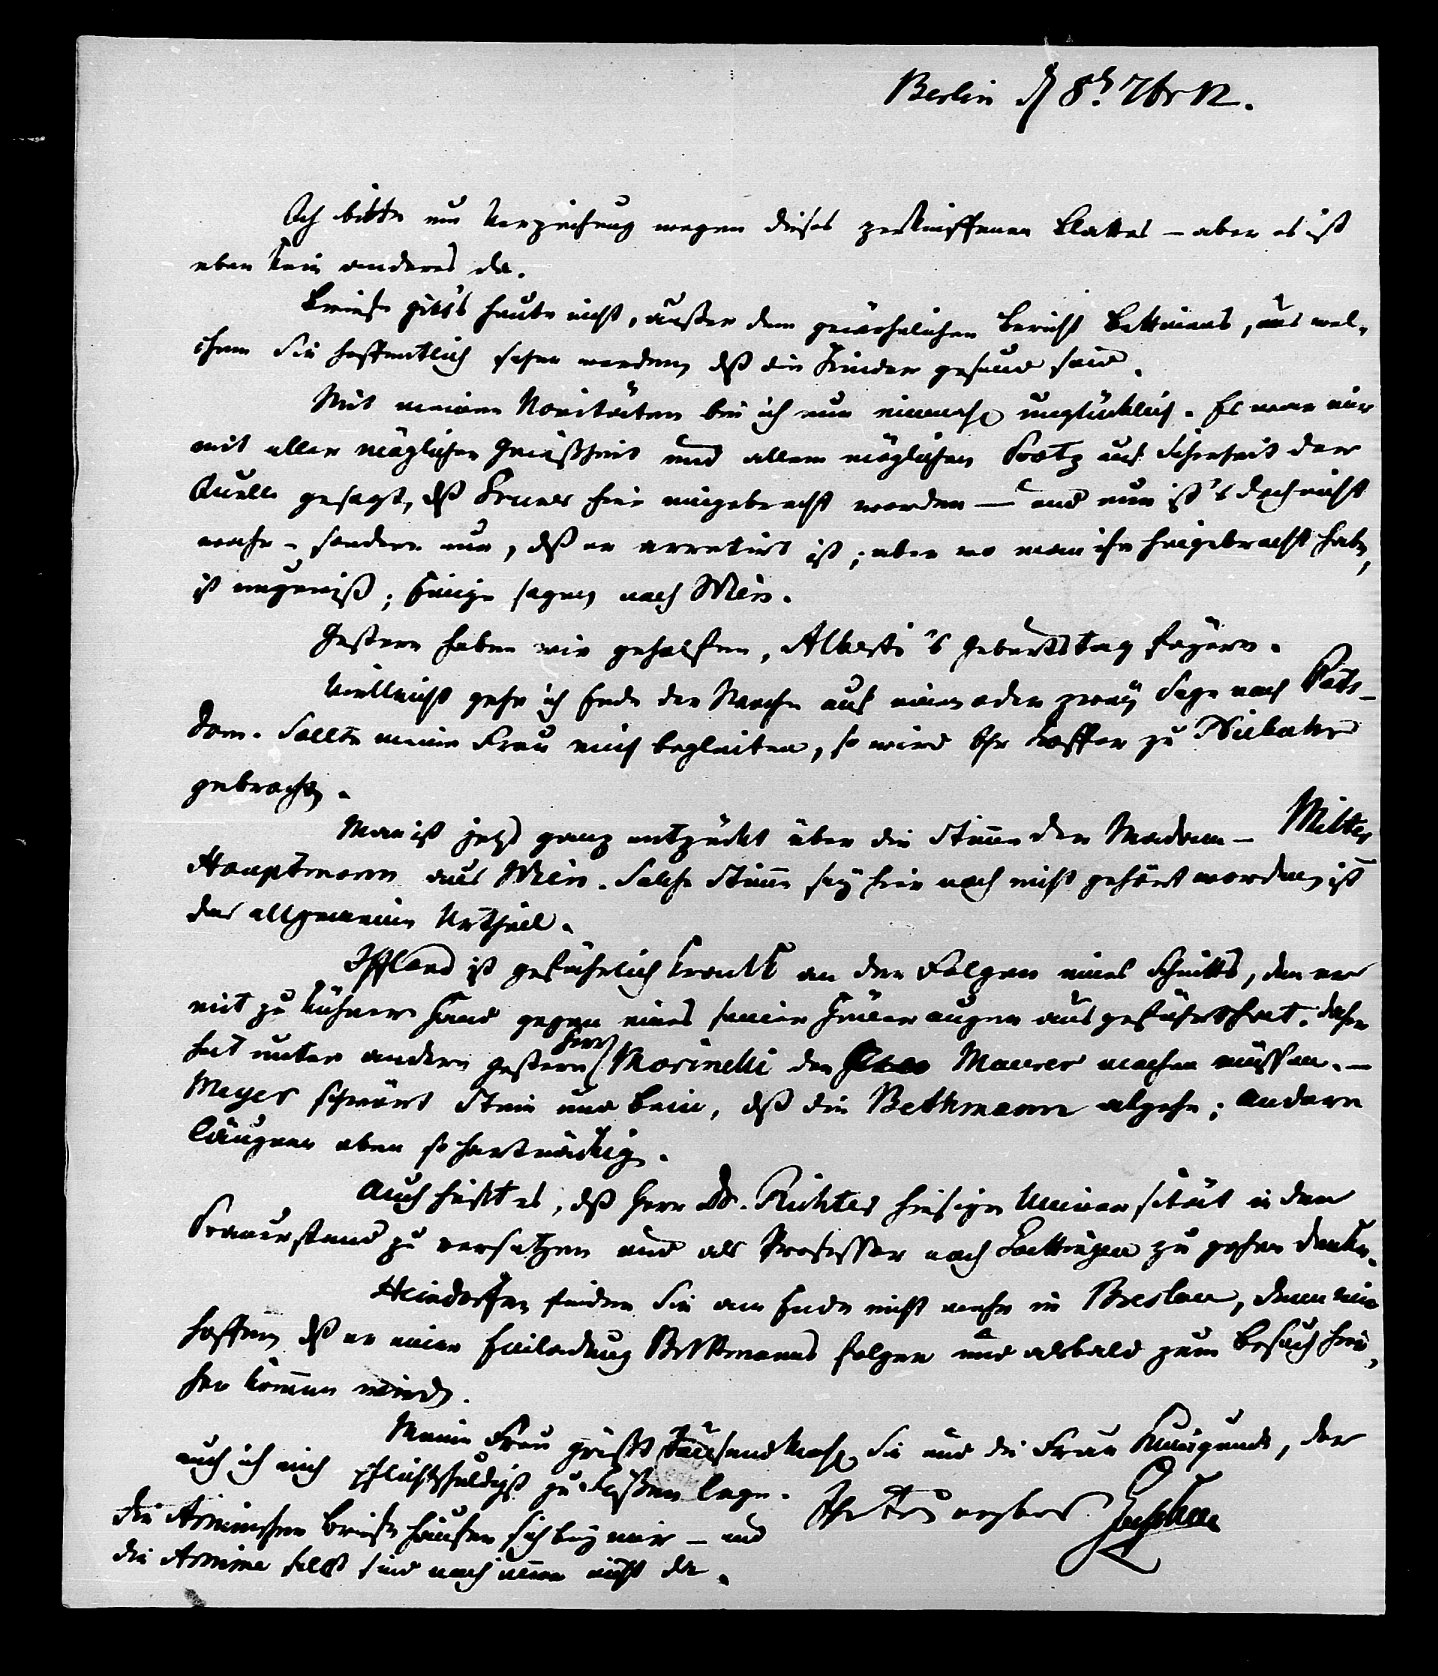 Berlin d 8t. 7br 12.
Ich bitte um Verzeihung wegen dieses zerkniffenen Blattes – aber es ist
eben kein anderes da.
Briefe gibt's heute nicht, außer dem gewöhnlichen Bericht Bettmanns, aus wel-
chem Sie hoffentlich sehen werden, dß die Kinder gesund sind.
Mit meinen Novitäten bin ich nun einmahl unglücklich. Es war mir
mit aller möglicher Gewißheit und allem möglichen Trotz auf Sicherheit der
Quelle gesagt, dß Gruner hier eingebracht worden – und nun ist's doch nicht
wahr – sondern nur, dß er arretirt ist; aber wo man ihn hingebracht habe,
ist ungewiß; Einige sagen nach Wien.
Gestern haben wir geholfen, Alberti's Geburtstag feyern.
Vielleicht gehe ich Ende der Woche auf einen oder zwey Tage nach Pots-
dam. Sollte meine Frau mich begleiten, so wird Ihr Koffer zu Niebuhr
gebracht.
Man ist jetzt ganz entzückt über die Stimme der Madam – Milder
Hauptmann aus Wien. Solche Stimme sey hier noch nicht gehört worden, ist
das allgemeine Urtheil.
Iffland ist gefährlich krank an den Folgen eines Schnitts, den er
mit zu kühner Hand gegen eines seiner Hüneraugen ausgeführt hat. Daher
hat unter andern gestern Herr Morinelli den Maurer machen müssen. –
Meyer schwört Stein und Bein, dß die Bethmann abgehe; andere
läugnen eben so hartnäckig.
Auch heißt es, dß Herr Dr. Richter hiesige Universität in den
Trauerstand zu versetzen und als Professor nach Goettingen zu gehen denke.
Heindorfen finden Sie am Ende nicht mehr in Breslau, denn wir
hoffen, dß er einer Einladung Buttmanns folgen und alsbald zum Besuch hie-
her kommen wird.
Meine Frau grüßt tausendmahl Sie und die Frau Kunigunde, der
auch ich mich pflichtschuldigst zu Füßen lege.
Ihr treu ergebener
die Arnimschen Briefe häufen sich bey mir – und
die Arnime selbst sind noch immer nicht da.